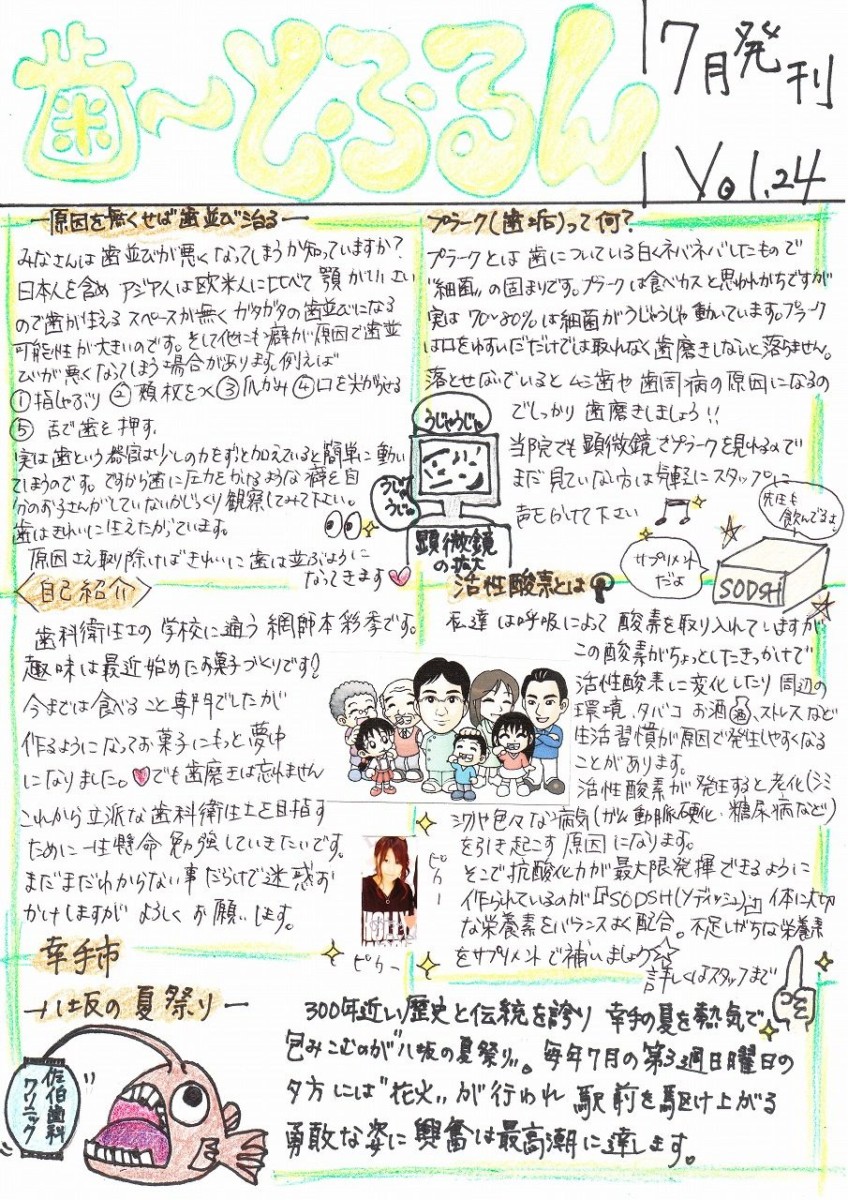 歯〜とふ・るん
7月発刊
Vol.24
原因を無くせば歯並び治る
みなさんは歯並びが悪くなってしまうか知っていますか?
日本人を含めアジア人は欧米人に比べて顎が小さい
ので歯が生えるスペースが無くガタガタの歯並びになる
可能性が大きいのです。そして他にも癖が原因で歯並
びが悪くなってしまう場合があります。例えば
①指しゃぶり ②頬杖をつく ③爪かみ ④口を尖がらせる
⑤ 舌で歯を押す。
実は歯という器官は少しの力をずっと加えていると簡単に動い
てしまうのです。ですから歯に圧力をかけるような癖を自
分のお子さんがしていないかじっくり観察してみて下さい。
歯はきれいに生えたがっています。
原因さえ取り除けばきれいに歯は並ぶように
なってきます
プラーク(歯垢)って何?
プラークとは歯についている白くネバネバしたもので
"細菌"の固まりです。プラークは食べカスと思われがちですが
実は70〜80%は細菌がうじゃうじゃ動いています。プラーク
は口をゆすいだだけでは取れなく歯磨きしないと落ちません。
落とせないでいるとムシ歯や歯周病の原因になるの
でしっかり歯磨きしましょう!!
当院でも顕微鏡でプラークを見れるので
まだ見ていない方は気軽にスタッフに
声をかけて下さい
うじゃうじゃ
うじゃうじゃ
顕微鏡
の拡大
先生も
飲んでるよ
サプリメント
だよ
SODSH
自己紹介
歯科衛生士の学校に通う網師本彩季です。
趣味は最近始めたお菓子づくりです!
今までは食べること専門でしたが
作るようになってお菓子にもっと夢中
になりました。でも歯磨きは忘れません
これから立派な歯科衛生士を目指す
ために一生懸命勉強していきたいです。
まだまだわからない事だらけで迷惑お
かけしますがよろしくお願いします。
ピカー
ピカー
活性酸素とは
私達は呼吸によって酸素を取り入れていますが
この酸素がちょっとしたきっかけで
活性酸素に変化したり周辺の
環境、タバコ お酒 酒、ストレスなど
生活習慣が原因で発生しやすくなる
ことがあります。
活性酸素が発生すると老化(シミ
シワや色々な病気(がん動脈硬化・糖尿病など)
を引き起こす原因になります。
そこで抗酸化力が最大限発揮できるように
作られているのが『SODSH(ソディッシュ)』体に大切
な栄養素をバランスよく配合。不足しがちな栄養素
をサプリメントで補いましょう
詳しくはスタッフまで
幸手市
八坂の夏祭り
佐伯歯科
クリニック
300年近い歴史と伝統を誇り幸手の夏を熱気で
包みこむのが"八坂の夏祭り"。毎年7月の第3週日曜日の
夕方には"花火"が行われ駅前を駆け上がる
勇敢な姿に興奮は最高潮に達します。